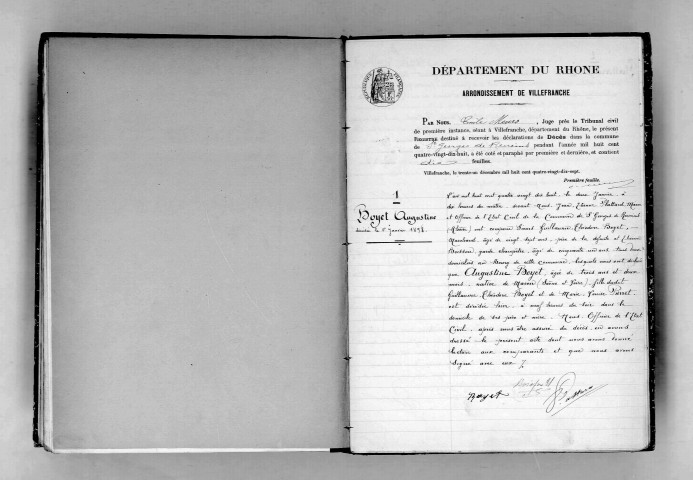 DÉPARTEMENT DU RHONE
ARRONDISSEMENT DE VILLEFRANCHE
PAR NOUS, Emile , Juge près le Tribunal civil
de première instance, séant à Villefranche, département du Rhône, le présent
REGISTRE destiné à recevoir les déclarations de Décès dans la commune
de St Georges de Reneins pendant l'année mil huit cent
quatre-vingt-dix-huit, a été coté et paraphé par première et dernière, et contient
feuilles.
Villefranche, le trente-un décembre mil huit cent quatre-vingt-dix-sept.
Première feuille.
1
Boyet Augustine
décédée le 1er janvier 1898
L'an mil huit cent quatre vingt dix huit, le deux Janvier à
dix heures du matin, devant Nous, Etienne Maire
et Officier de l'Etat Civil de la Commune de St Georges de Reneins
(Rhône) ont comparu Guillaume Théodore Boyet,
âgé de vingt sept ans, père de la défunte et Etienne
garde champêtre, âgé de cinquante ans tous deux
domiciliés au Bourg de cette commune, lesquels nous ont déclaré
que Augustine Boyet, âgée de trois ans et deux
mois, native de (Saône et Loire) fille dudit
Guillaume Théodore Boyet et de Marie
est décédée hier à neuf heures du soir dans le
domicile de ses père et mère. Nous Officier de l'Etat
Civil, après nous être assuré du décès, en avons
dressé le présent acte dont nous avons donné
lecture aux comparants et que nous avons
signé avec eux
Boyet